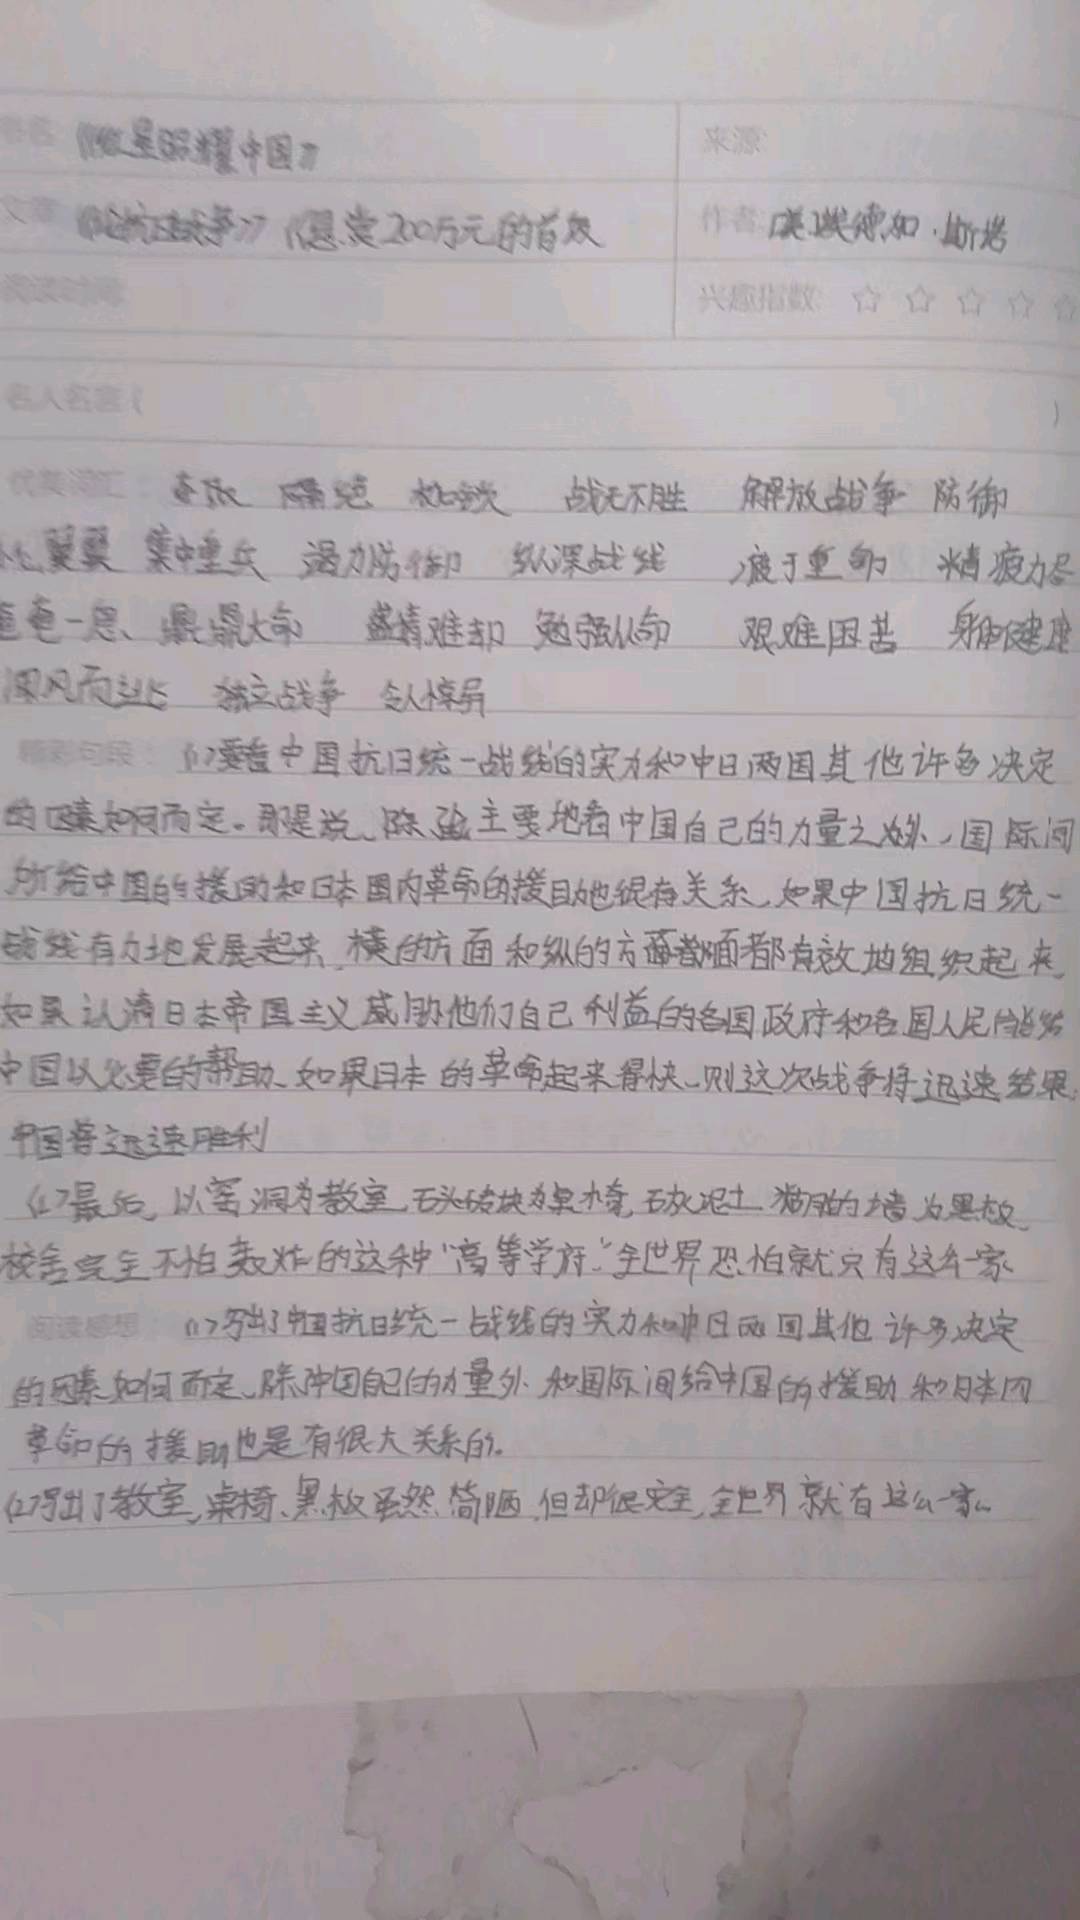 书名 《红星照耀中国》 来源:
文章 《论抗日战争》《悬赏200万元的首级 作者: 埃德加·斯诺
阅读时间 兴趣指数: ☆ ☆ ☆ ☆ ☆
名人名言 ( )
优美词汇: 隔绝 战无不胜 解放战争 防御
翼翼 集中重兵 竭力防御 纵深战线 疲于重 精疲力尽
奄奄一息、 鼎鼎大名 盛情难却 勉强从命 艰难困苦 身体健康
闻风而逃 独立战争 令人惊异
精彩句段: (1)要看中国抗日统一战线的实力和中日两国其他许多决定
的因素如何而定。那是说、除 主要地看中国自己的力量之外、国际间
所给中国的援助和日本国内革命的援助也很有关系、如果中国抗日统一
战线有力地发展起来、横的方面和纵的方面都有效地组织起来
如果认清日本帝国主义威胁他们自己利益的各国政府和各国人民能给
中国以必要的帮助、如果日本的革命起来得快、则这次战争将迅速结果
中国将迅速胜利
(2)最后、以窑洞为教室、石头砖块为桌椅、石灰泥土糊的墙为黑板、
校舍完全不怕轰炸的这种“高等学府”全世界恐怕就只有这么一家。
阅读感想: (1)写出了中国抗日统一战线的实力和中日两国其他许多决定
的因素如何而定、除中国自己的力量外、和国际间给中国的援助和日本内
革命的援助也是有很大关系的。
(2)写出了教室、桌椅、黑板虽然简陋、但却很完全、全世界就有这么一家。